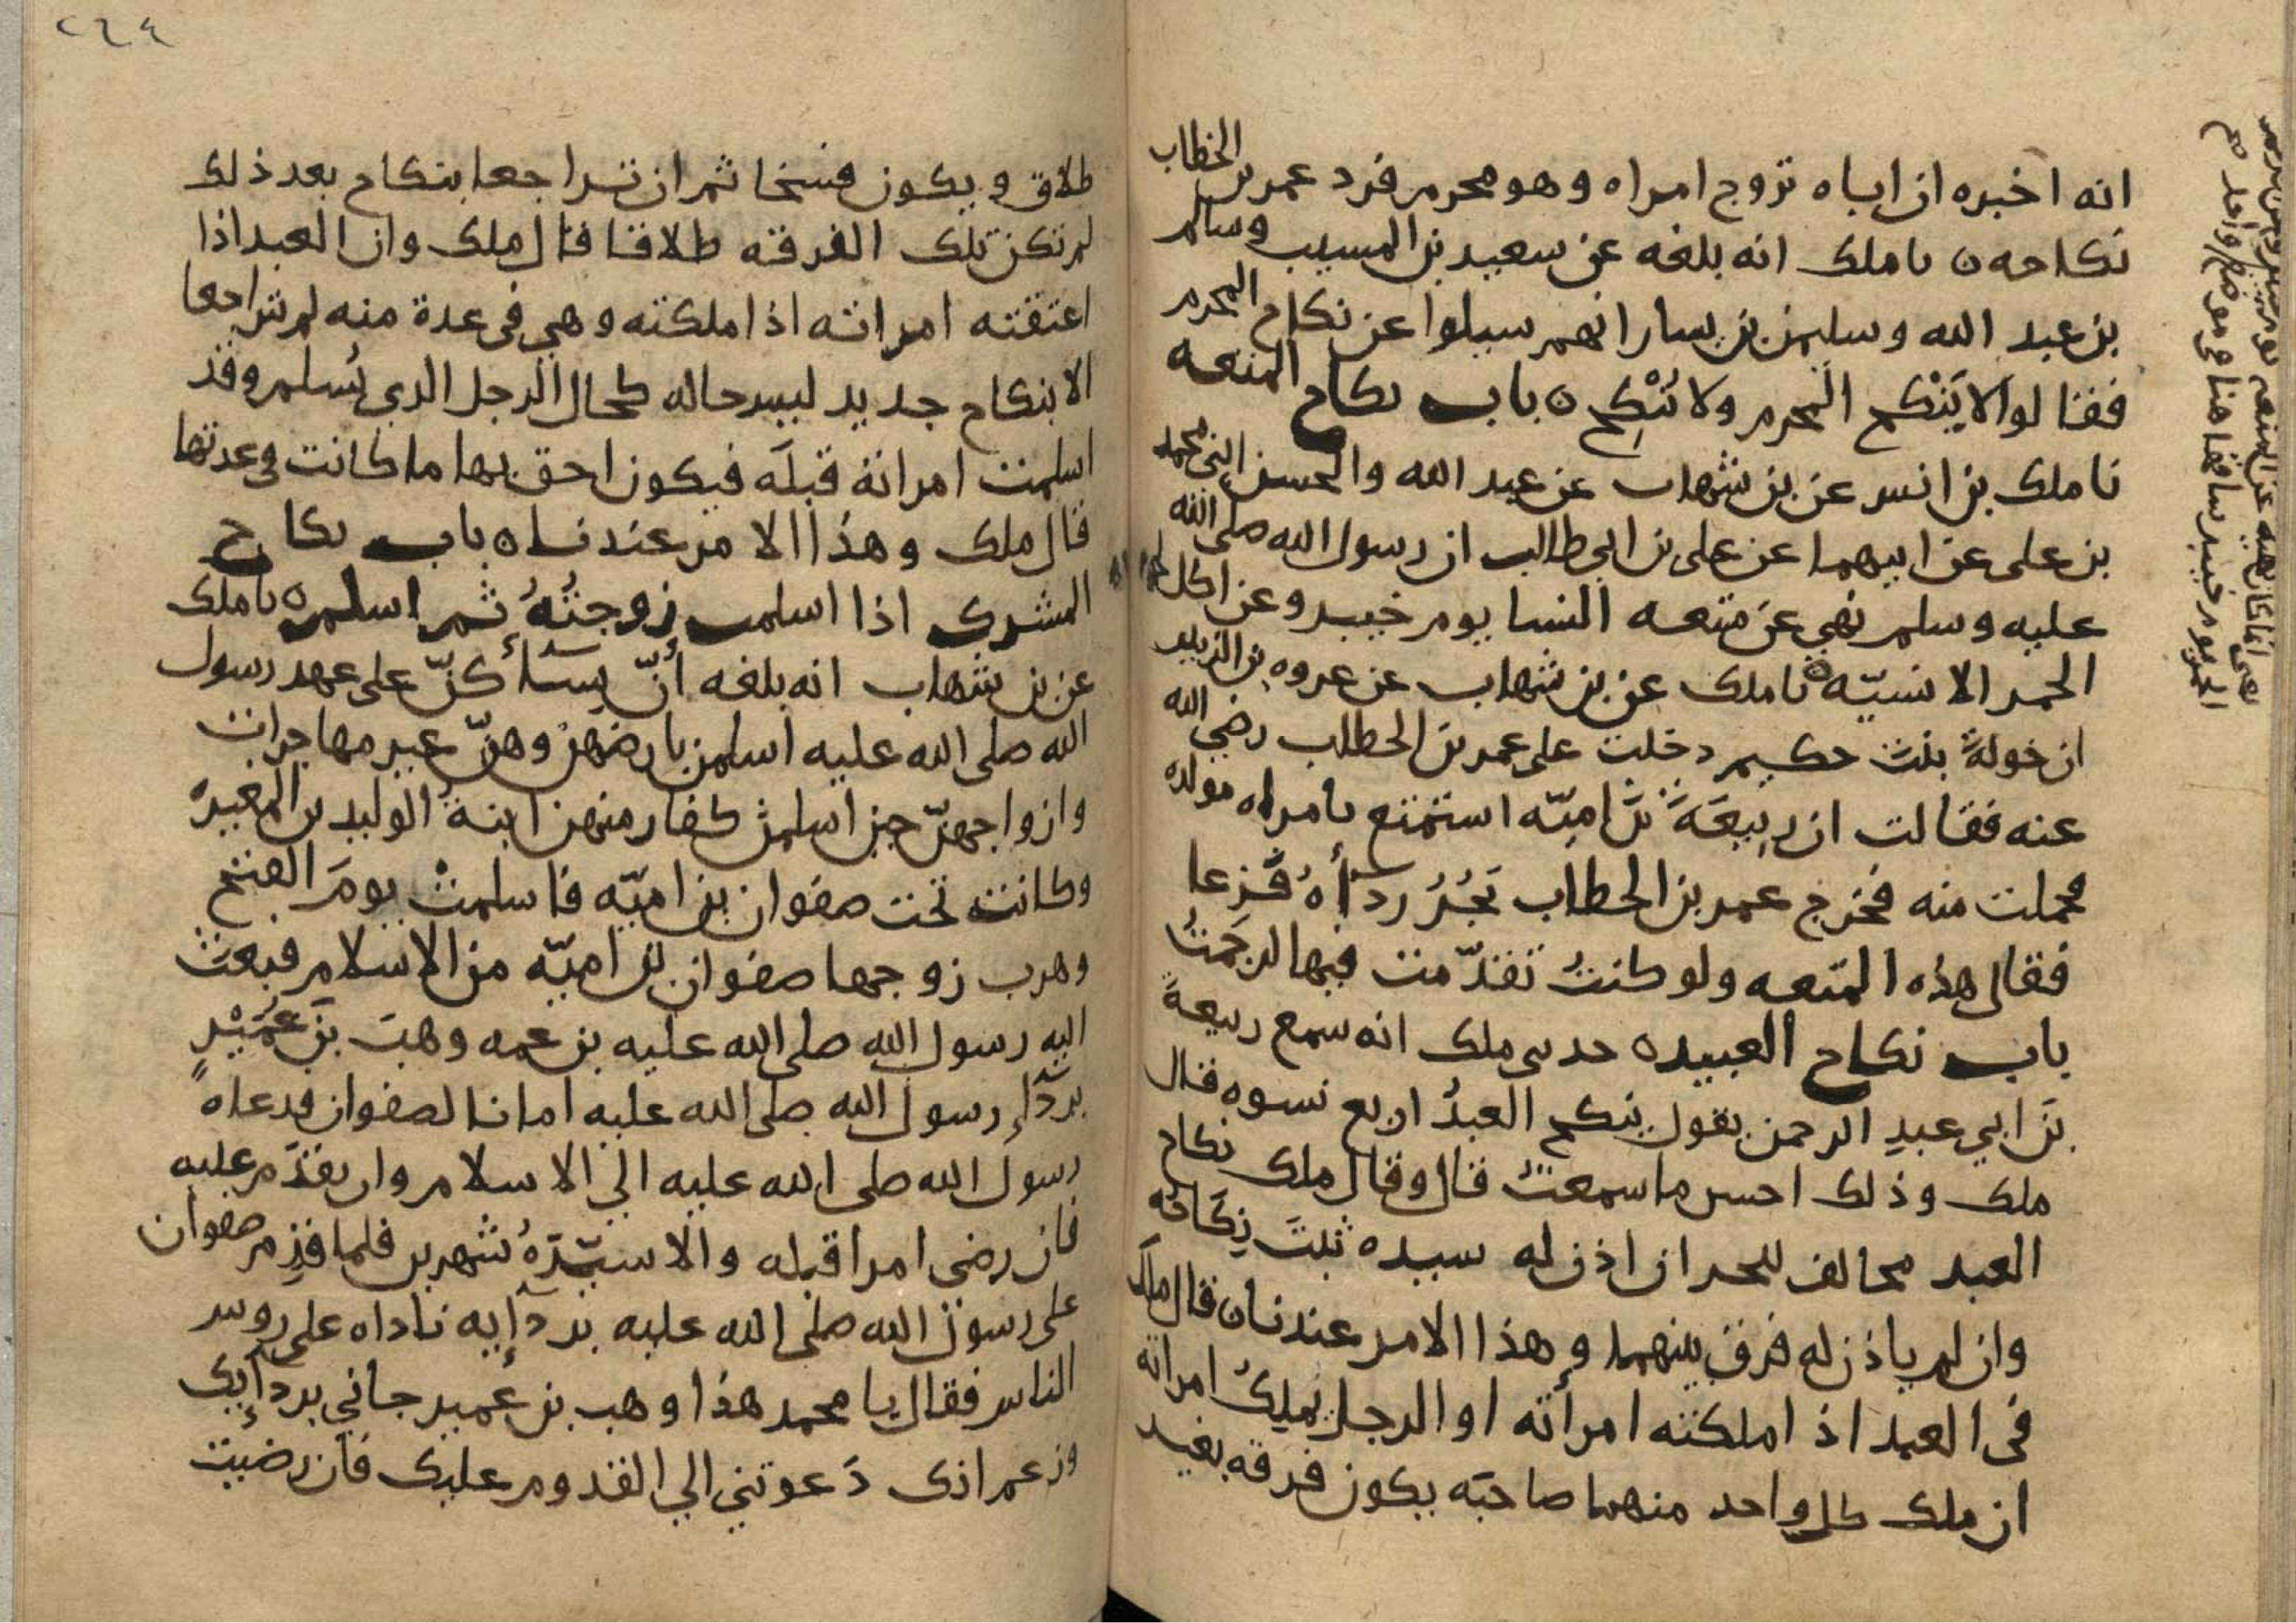 انه اخبره ان اباه تزوج امراه وهو محرم فرد عمر بن الخطاب
نكاحه ه نا ملك انه بلغه عن سعيد بن المسيب وسالم
بن عبد الله وسليمن بن يسار انهم سيلوا عن نكاح المحرم
فقالوا لا يَنْكح المحرم ولا يُنْكِح ه باب نكاح المتعه
نا ملك بن انس عن بن شهاب عن عبد الله والحسن ابني محمد
بن على عن ابيهما عن على بن ابي طالب ان رسول الله صلى الله
عليه وسلم نهي عن متعه النسا يوم خيبر وعن اكل لحوم
الحمر الانسيّه ه نا ملك عن بن شهاب عن عروه بن الزبير
ان خولةَ بنت حكيم دخلت على عمر بن الخطاب رضي الله
عنه فقالت ان رَبِيعَةَ بنَ اميّه استمتع بامراه مولده
فحملت منه فخرج عمر بن الخطاب يَجُرُ ردآأهُ فَزعا
فقال هذه المتعه ولو كنتُ تقدّمت فيها لرجَمتُ
باب نكاح العبيد ه حدىى ملك انه سمع ربيعةَ
بنَ ابي عبدِ الرحمن يقول ينكح العبدُ اربع نسوه قال
ملك وذلك احسن ما سمعتُ قال وقال ملك نكاح
العبد مخالف للحر ان اذن له سيده ثبتَ نِكَاحُه
وان لم ياذن له فرق بينهما وهذا الامر عندنا ه قال ملك
في العبد اذ املكته امرأته او الرجل يملِكُ امراته
ان ملك كل واحد منهما صاحبَه يكون فرقه بغير
٢٦٤
طلاق ويكون فسخا ثم ان تراجعا بنكاح بعد ذلك
لم تكن تلك الفرقه طلاقا قال ملك وان العبد اذا
اعتقته امراته اذا ملكته وهي في عدة منه لم يتراجعا
الا بنكاح جديد ليس حاله كحال الرجل الدي يُسلم وقد
اسلمت امراته قبلَه فيكون احق بها ما كانت في عدتها
قال ملك وهذا الامر عندنا ه باب نكاح
المشرك اذا اسلمت زوجتُهُ ثم اسلم ه نا ملك
عن بن شهاب انه بلغه أنّ نِسآأ كنّ على عهد رسول
الله صلى الله عليه اسلمن بارضهن وهنّ غير مهاجرات
وازواجهنّ حين اسلمن كفار منهن ابنةُ الوليد بن المغيره
وكانت تحت صفوان بن اميّه فاسلمتْ يومَ الفتح
وهرب زوجها صفوان بن اميّه من الاسلام فبعث
اليه رسول الله صلى الله عليه بن عمه وهبَ بنَ عُمَيْرٍ
بردآإ رسول الله صلى الله عليه امانا لصفوان فدعاه
رسول الله صلى الله عليه الى الاسلام وان يقدَم عليه
فان رضي امرا قبله والا سيّرَهُ شهرين فلما قَدِم صفوان
على رسول الله صلى الله عليه بردآإيه ناداه على روس
الناس فقال يا محمد هذا وهب بن عُمير جاني بردآإيك
وزعم انك دَعوتني الي القدوم عليك فان رضيت